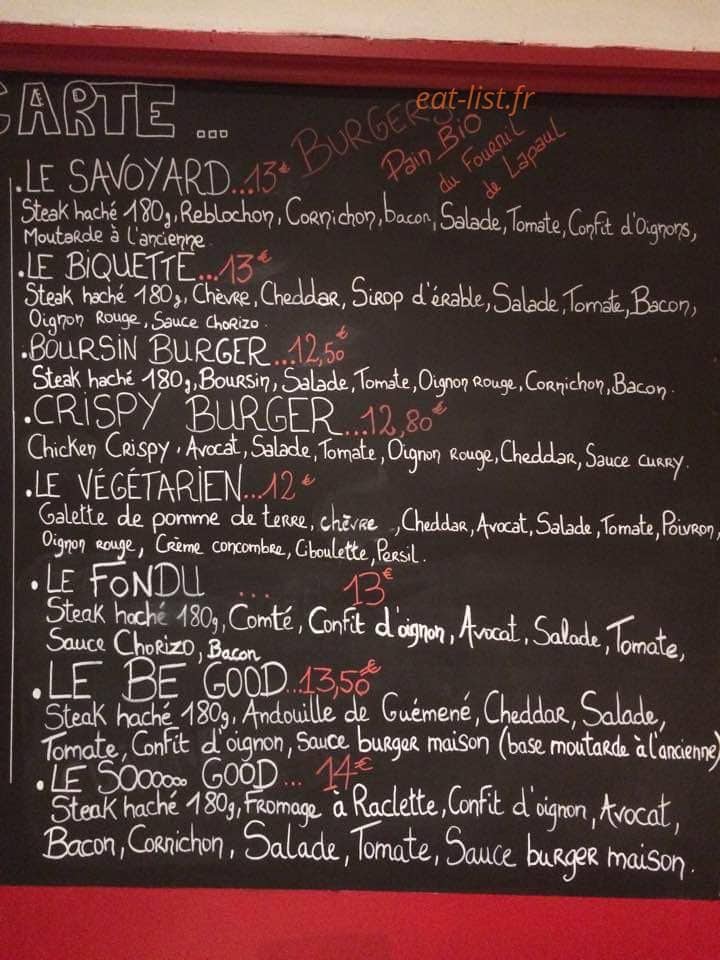 eat-list.fr
CARTE ...
BURGERS
Pain Bio
du Fournil
de Lapaul
.LE SAVOYARD...13€
Steak haché 180g, Reblochon, Cornichon, bacon, Salade, Tomate, Confit d'Oignons,
Moutarde à l'ancienne.
.LE BIQUETTE...13€
Steak haché 180g, Chèvre, Cheddar, Sirop d'érable, Salade, Tomate, Bacon,
Oignon Rouge, Sauce Chorizo.
.BOURSIN BURGER...12,50€
Steak haché 180g, Boursin, Salade, Tomate, Oignon Rouge, Cornichon, Bacon.
.CRISPY BURGER...12,80€
Chicken Crispy, Avocat, Salade, Tomate, Oignon Rouge, Cheddar, Sauce curry.
.LE VÉGÉTARIEN...12€
Galette de pomme de terre, chèvre, Cheddar, Avocat, Salade, Tomate, Poivron,
Oignon rouge, Crème concombre, Ciboulette, Persil.
.LE FONDU ... 13€
Steak haché 180g, Comté, Confit d'oignon, Avocat, Salade, Tomate,
Sauce Chorizo, Bacon
.LE BE GOOD...13,50€
Steak haché 180g, Andouille de Guémené, Cheddar, Salade,
Tomate, Confit d'oignon, sauce burger maison (base moutarde à l'ancienne)
.LE SOooooo GOOD ... 14€
Steak haché 180g, Fromage à Raclette, Confit d'oignon, Avocat,
Bacon, Cornichon, Salade, Tomate, Sauce burger maison.